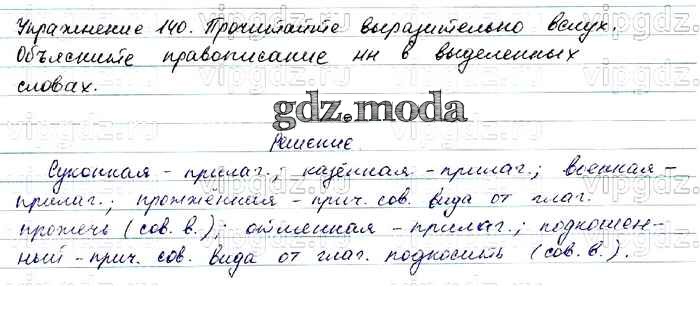 Упражнение 140. Прочитайте выразительно вслух.
Объясните правописание нн в выделенных
словах.
gdz.moda
Решение.
Суконная - прилаг.; казённая - прилаг.; военная -
прилаг.; прожжённая - прич. сов. вида от глаг.
прожечь (сов. в.); отменная - прилаг.; подкошен-
ный - прич. сов. вида от глаг. подкосить (сов. в.).